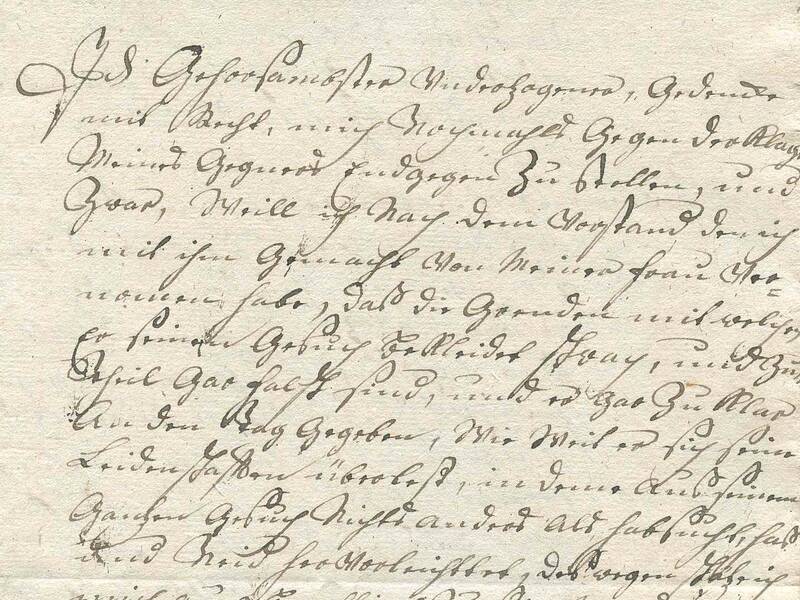 Ich Gehorsambster Underzogener, Gedencke
mit Recht, mich Nochmahls Gegen der Klage
Meines Gegners Endgegen Zu stellen, und
Zwar, Weill ich Nach dem Vorstand den ich
mit ihm Gemacht Von Meiner frau Ver=
nomen habe, daß die Grenden mit welchen
Er seinen Gesuch bekleidet schwach, und Zum
theil Gar falsch sind, und er gar Zu klar
An den Tag Gegeben, Wie Weit er sich seine
Leidenschaften überlest, in deme Aus seinem
Ganzen Gesuch Nichts anders Als habsucht, haß
und Neid her Vorleichtet, deswegen